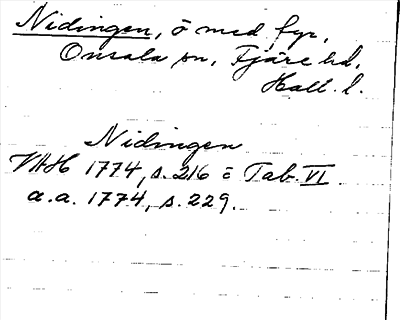 Nidingen, ö med fyr,
Onsala sn, Fjäre hd,
Hall. l.
Nidingen
VAH 1774, s. 216 o Tab. VI
a.a. 1774, s. 229.